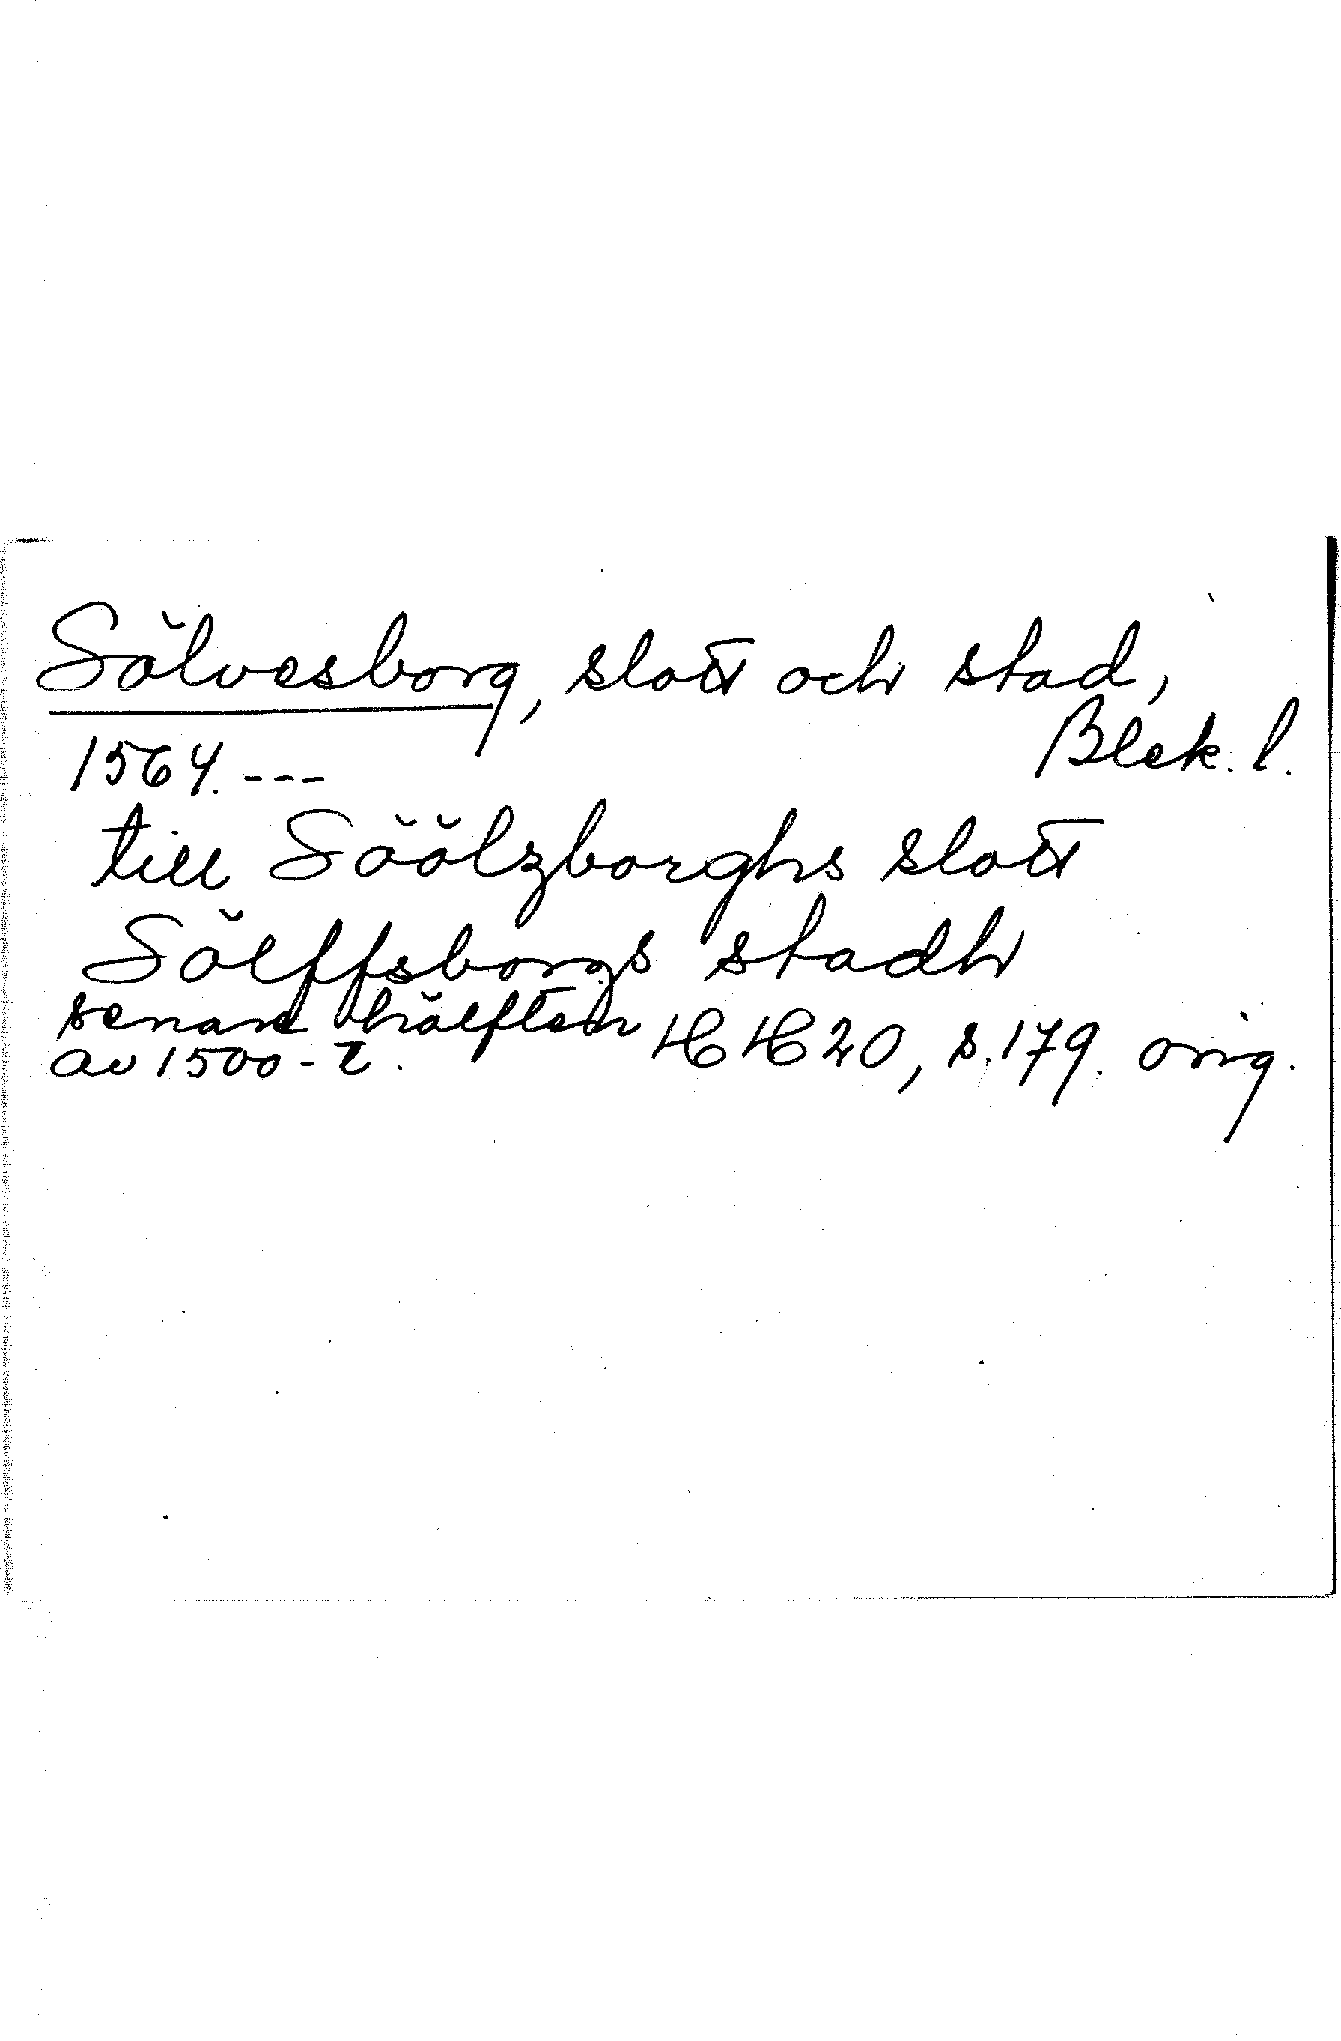 Sölvesborg, slott och stad,
Blek. l.
1564. ---
till Söölzborghs slott
Sölffsborgs stadh
senare hälften
av 1500-t.
HH 20, s. 179. orig.